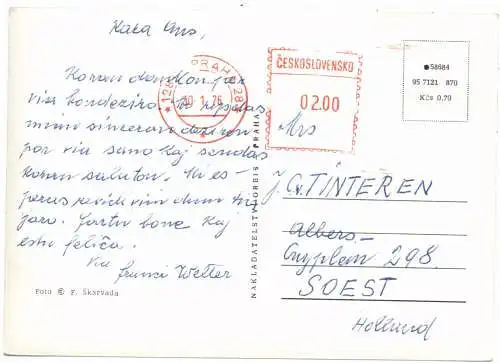 Kara Ans,
Koran dankon pro
via bondeziro. Mi
mian sinceran deziron
por via sano kaj sendas
koran saluton. Mi es-
peras revidi vin dum tiu
jaro. Fartu bone kaj
estu feliĉa.
Via
Franzi Welter
Foto © F. Škarvada
NAKLADATELSTVÍ ORBIS PRAHA
PRAHA 28
10.1.76
ČESKOSLOVENSKO
02.00
58684
95 7121 870
Kčs 0,70
Mrs
J. C. v. TINTEREN
Albers-
Cuyplein 298.
SOEST
Holland